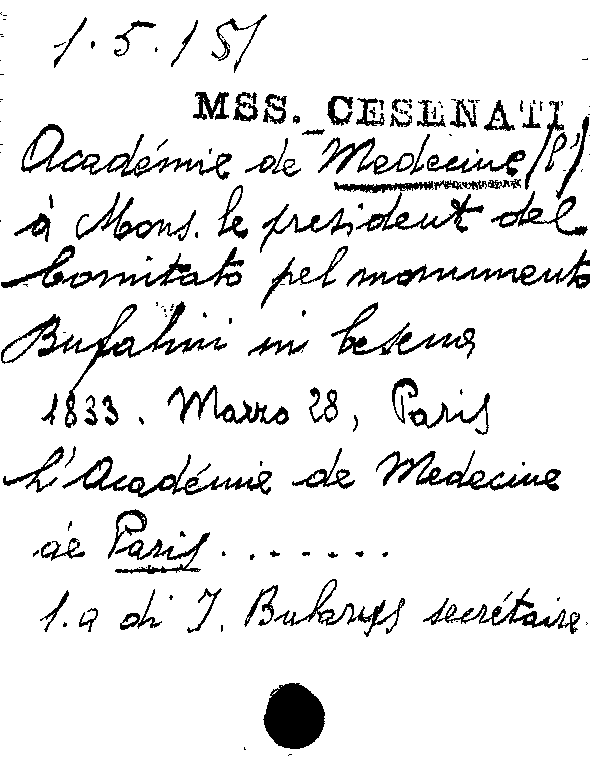 1.5.151
MSS. CESENATI
Académie de Medecine (l')
à Mons. le president del
Comitato pel monumento
Bufalini in Cesena
1833. Marzo 28, Paris
L'Académie de Medecine
de Paris . . . . . . .
1.a di J. secrétaire